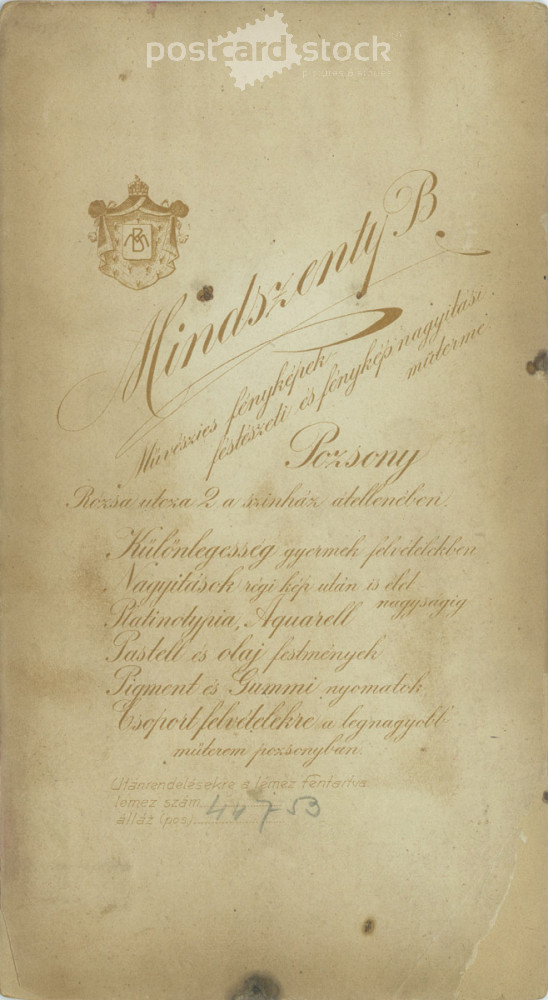 postcard stock
MB
Mindszenty B.
Művészies fényképek
festészeti és fénykép nagyitási
műterme.
Pozsony
Rózsa utcza 2 a szinház átellenében.
Különlegesség gyermek felvételekben
Nagyitások régi kép után is élet
nagyságig
Platinotypia, Aquarell
Pastell és olaj festmények
Pigment és Gummi nyomatok,
Csoportfelvételekre a legnagyobb
műterem pozsonyban.
Utánrendelésekre a lemez fentartva
lemez szám
állás (pos)
44753